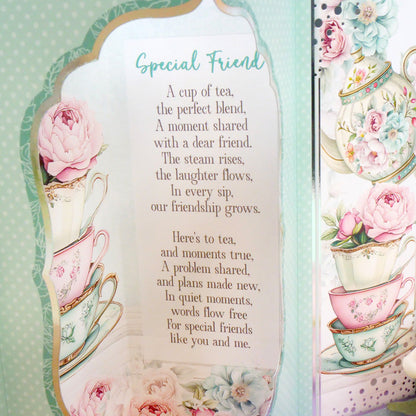 Special Friend
A cup of tea,
the perfect blend,
A moment shared
with a dear friend.
The steam rises,
the laughter flows,
In every sip,
our friendship grows.
Here's to tea,
and moments true,
A problem shared,
and plans made new,
In quiet moments,
words flow free
For special friends
like you and me.